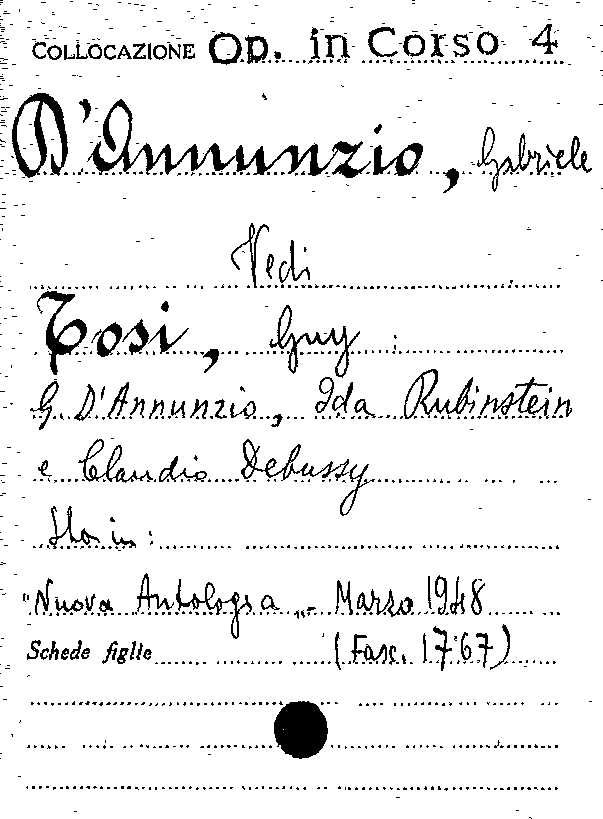 COLLOCAZIONE Op. in Corso 4
D'Annunzio, Gabriele
Vedi
Tosi, Guy :
G. D'Annunzio, Ida Rubinstein
e Claudio Debussy
Sta in:
"Nuova Antologia„- Marzo 1948
Schede figlie (Fasc. 1767)